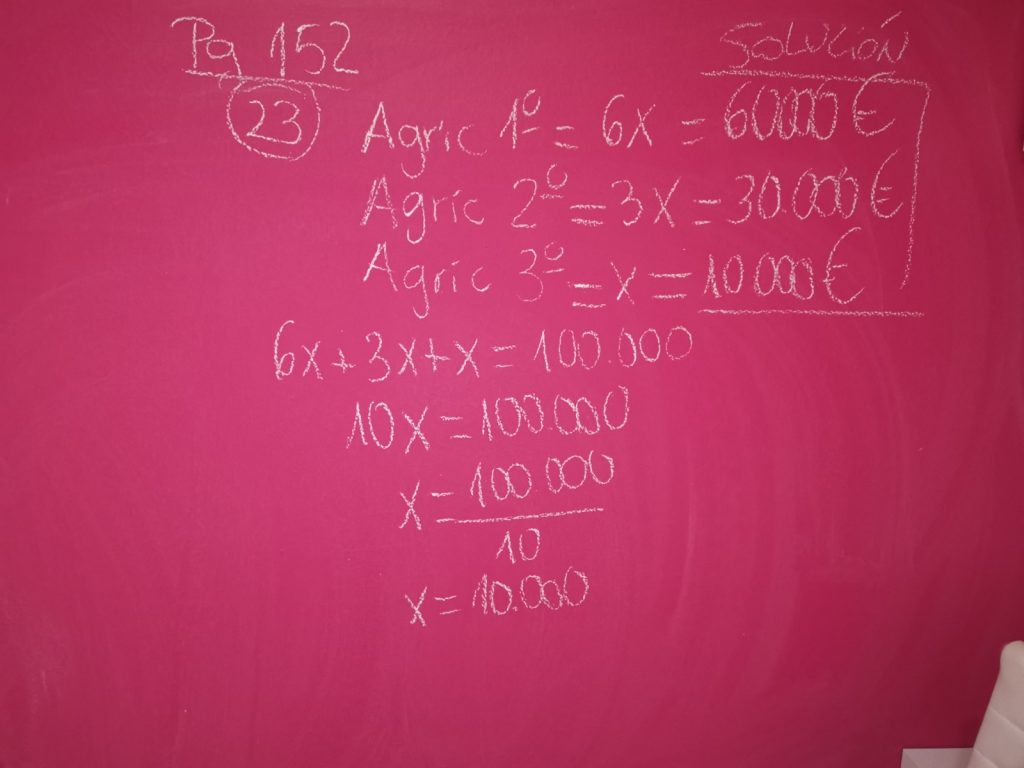 Pg 152
SOLUCIÓN
23
Agric 1º = 6x = 60000 €
Agric 2º = 3x = 30.000 €
Agric 3º = x = 10 000 €
6x + 3x + x = 100.000
10x = 100.000
x = 100.000
10
x = 10.000